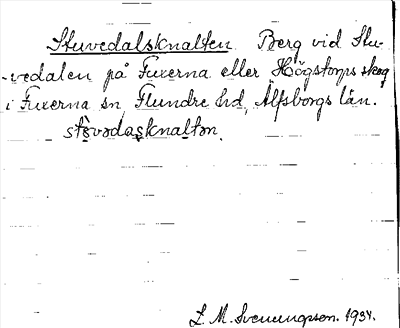 Stuvedalsknalten Berg vid Stu-
-vedalen på Fuxerna eller Högstorps skog
i Fuxerna sn, Flundre hd, Älfsborgs län.
stovədasknaltən.
L. M. Svenungsson. 1934.